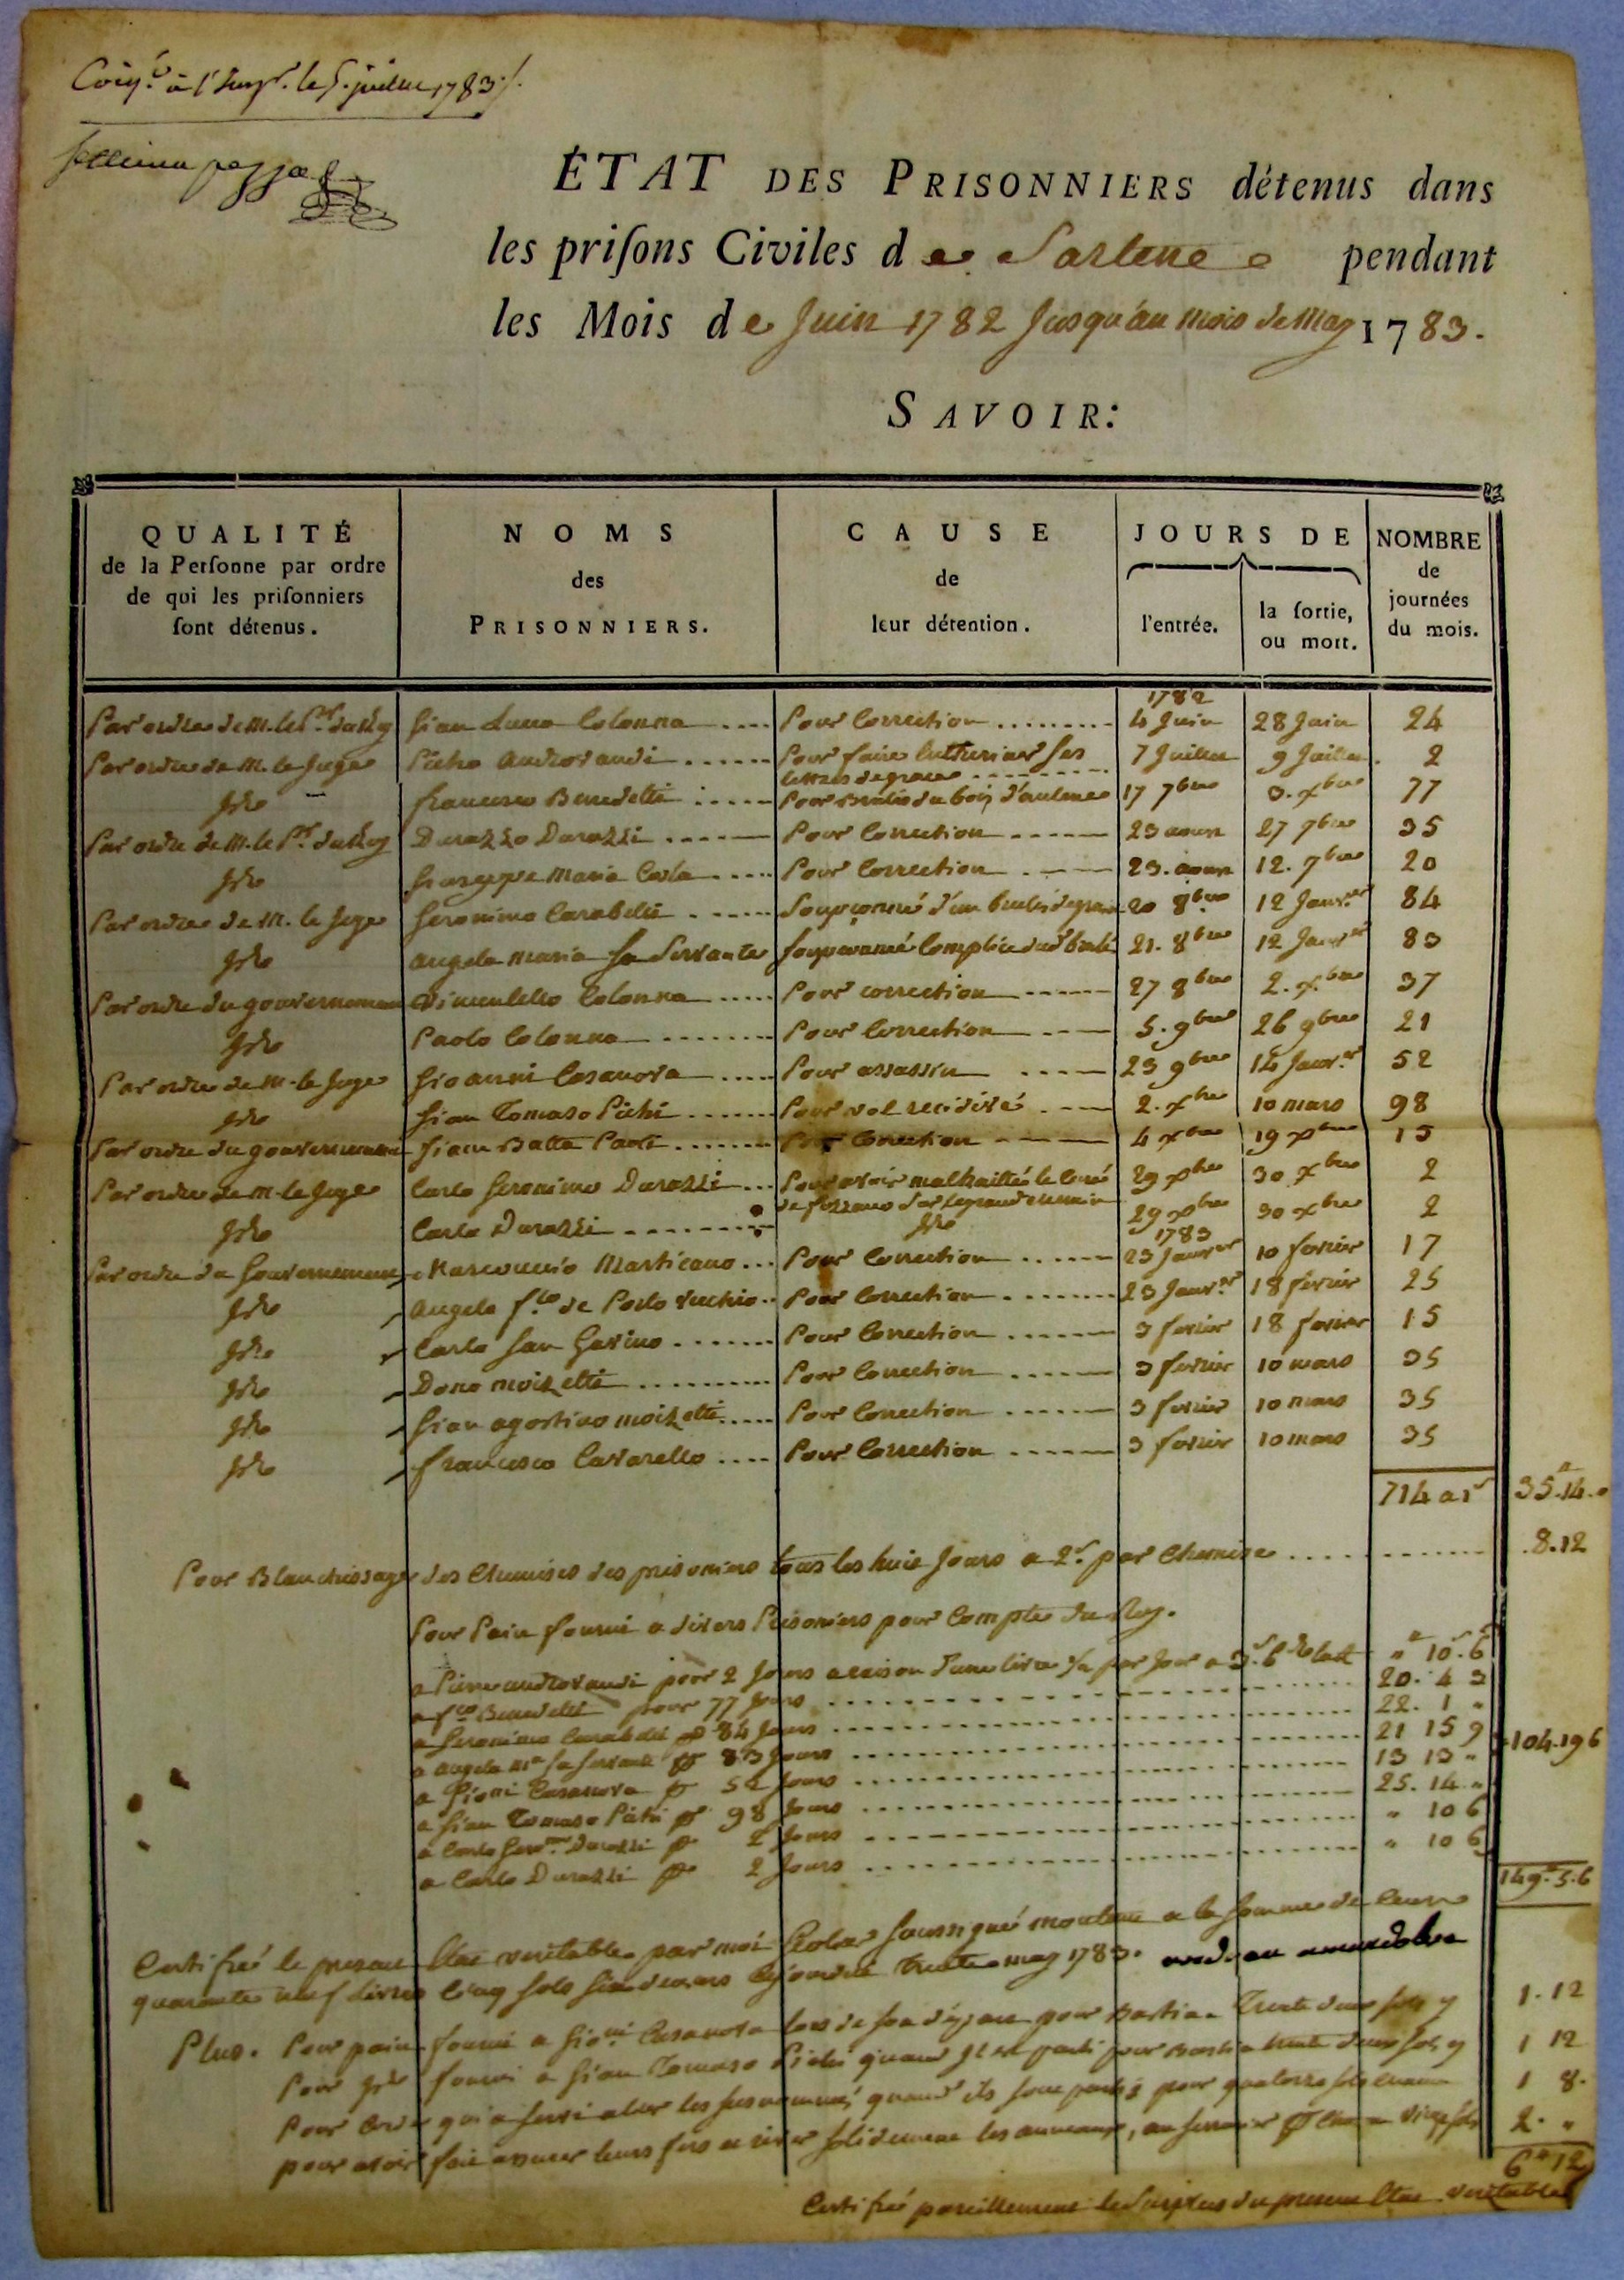 à l' le 5. juillet 1783
ÉTAT DES PRISONNIERS détenus dans
les priſons Civiles de Sartene pendant
les Mois de Juin 1782 Jusqu'au mois de May 1783.
SAVOIR:
QUALITÉ
de la Perſonne par ordre
de qui les priſonniers
ſont détenus.
NOMS
des
PRISONNIERS.
CAUSE
de
leur détention.
JOURS DE
l'entrée.
la ſortie,
ou mort.
NOMBRE
de
journées
du mois.
1782
Par ordre de M. le Pr. du Roy Gian Luca Colonna Pour Correction 4 Juin 28 Juin 24
Par ordre de M. le Juge Pietro Pour faire entheriner ses 7 Juillet 9 Juillet 2
lettres de grace
Jdo Francesco Benedetti Pour du bois d'autene 17 7bre 3. xbre 77
Par ordre de M. le Pr. du Roy Durazzo Durazzi Pour Correction 23 aoust 27 7bre 35
Jdo Giuseppe Maria Costa Pour Correction 23. aoust 12. 7bre 20
Par ordre de M. le Juge Geronimo Carabelli Soupçonné d'un 20 8bre 12 Janvr. 84
Jdo Angela Maria Sa Servante Soupconné Complice dud. 21. 8bre 12 Janvr. 83
Par ordre du gouvernement Vincentello Colonna Pour correction 27 8bre 2. xbre 37
Jdo Paolo Colonna Pour Correction 5. 9bre 26 9bre 21
Par ordre de M. le Juge Gioanni Casanova Pour assassin 23 9bre 14 Janvr. 52
Jdo Gian Tomaso Pietri Pour vol recidivé 2. xbre 10 mars 98
Par ordre du gouvernement Gian Batta Paoli Pour Correction 4 xbre 19 xbre 15
Par ordre de M. le Juge Carlo Geronimo Durazzi Pour avoir maltraitté le Curé 29 xbre 30 xbre 2
de fozzano sur le grand chemin
Jdo Carlo Durazzi Jdo 29 xbre 30 xbre 2
1783
Par ordre du Gouvernement Marcouccio Marticano Pour Correction 23 Janvier 10 fevrier 17
Jdo Angelo f.co de Porto Vecchio Pour Correction 23 Janvr. 18 fevrier 25
Jdo Carlo San Gavino Pour Correction 3 fevrier 18 fevrier 15
Jdo Dono moizetti Pour Correction 3 fevrier 10 mars 35
Jdo Gian agostino moizetti Pour Correction 3 fevrier 10 mars 35
Jdo Francesco Cavarello Pour Correction 3 fevrier 10 mars 35
714 a 1s 35.14.
Pour Blanchissage des Chemises des prisoniers tous les huit Jours a 2s. par Chemise 8.12
Pour Pain fourni a divers Prisoniers pour Compte du Roy.
a pour 2 Jours a raison d'une livre ½ par Jour a 3s. 6d. " 10. 6
a f.co Benedetti pour 77 Jours 20. 4 3
a Geronimo Carabelli pr 84 Jours 22. 1 "
a Angela Ma Sa Servante pr 83 Jours 21 15 9
a Gioni Casanova pr 52 Jours 13 13 "
104.19 6
a Gian Tomaso Pietri pr 98 Jours 25. 14 "
a Carlo Geronmo Durazzi pr 2 Jours " 10 6
a Carlo Durazzi pr 2 Jours " 10 6
149. 5. 6
Certifié le present Etat veritable par moi Geolier soussigné montant a la somme de Cent
quarante neuf Livres Cinq sols six deniers trente may 1783.
Plus. Pour pain fourni a Gioni Casanova lors de son départ pour Bastia trente deux sols 1. 12
Pour Jdo fourni a Gian Tomaso Pietri quand Jl est parti pour Bastia trente deux sols 1 12
Pour qui a servi a lier les susnommés quand ils sont partis pour quatorze sols chacun 1 8.
pour avoir fait leurs fers et river solidement les anneaux, au serrurier pr Chacun Vingt sols 2. "
6 12
Certifié pareillement le Surplus du present Etat veritable